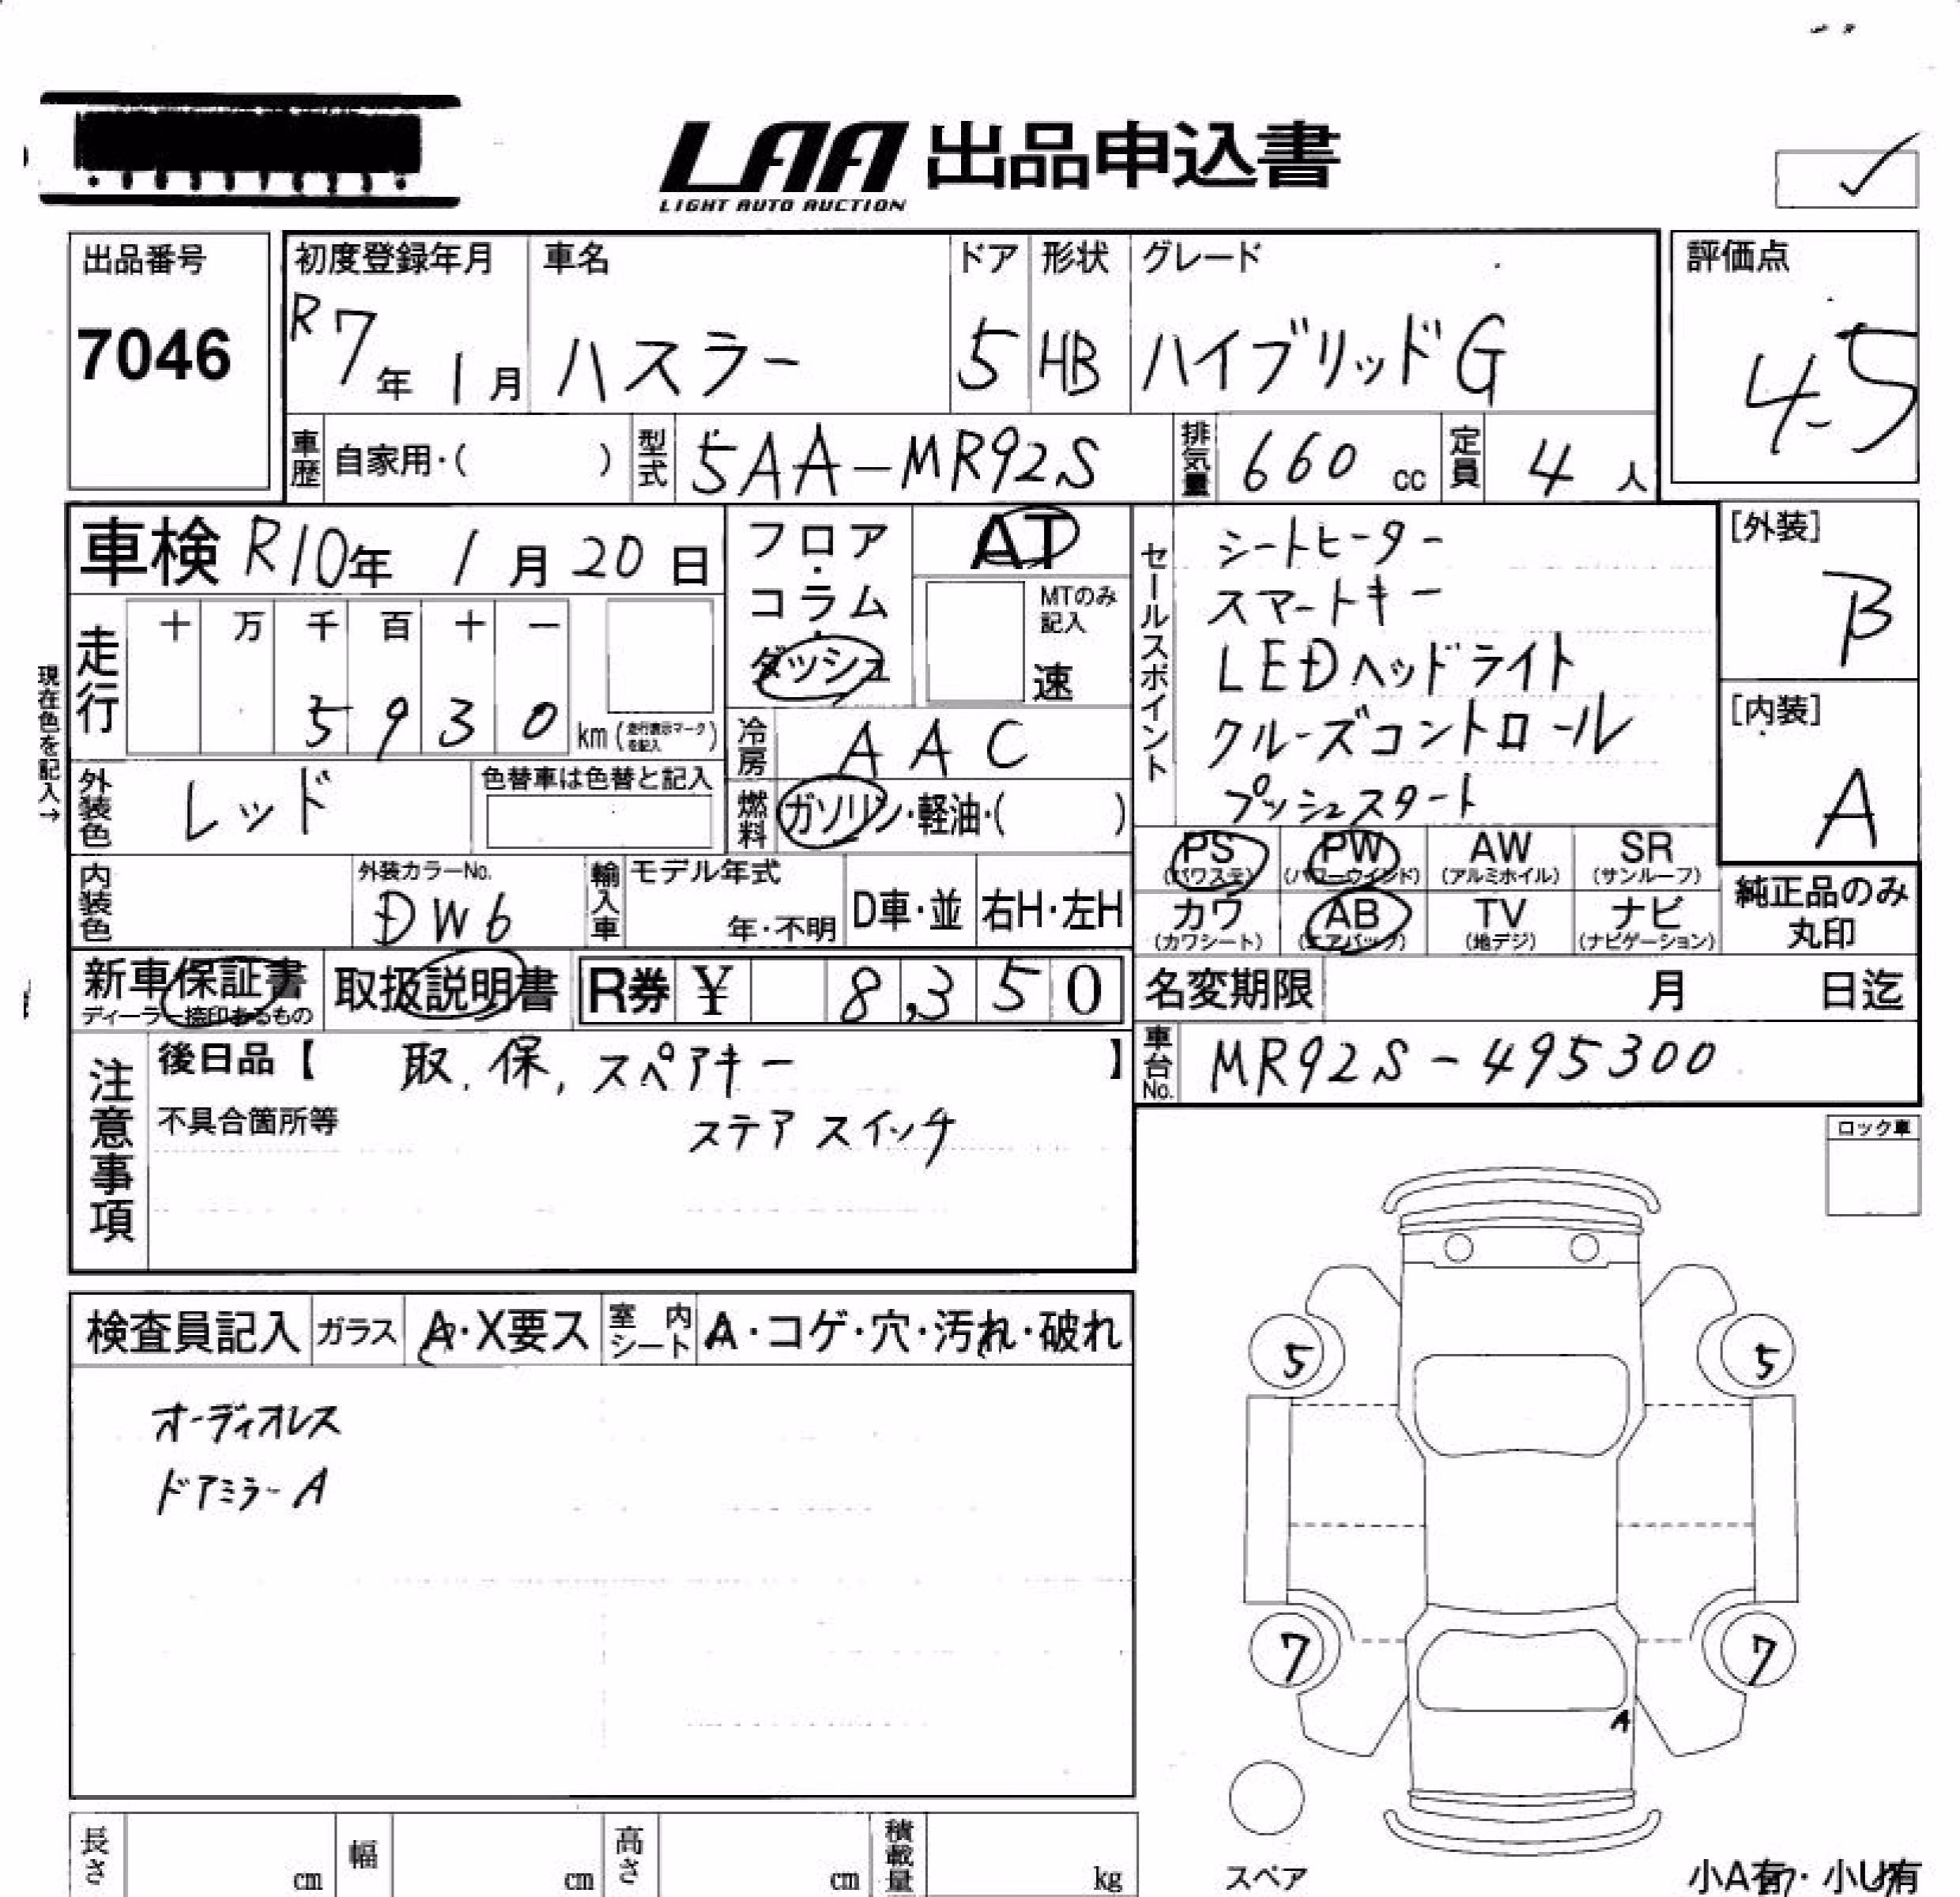 LAA 出品申込書
LIGHT AUTO AUCTION
出品番号
7046
初度登録年月
R7年1月
車名
ハスラー
ドア
5
形状
HB
グレード
ハイブリッドG
評価点
4.5
車歴 自家用・( )
型式 5AA-MR92S
排気量 660 cc
定員 4 人
車検 R10年 1月 20日
フロア・コラム・ダッシュ
AT
MTのみ記入
速
現在色を記入→
走行
十 万 千 百 十 一
5 9 3 0 km (走行表示マークを記入)
冷房 AAC
燃料 ガソリン・軽油・( )
外装色 レッド
色替車は色替と記入
セールスポイント
シートヒーター
スマートキー
LEDヘッドライト
クルーズコントロール
プッシュスタート
[外装]
B
[内装]
A
内装色
外装カラーNo.
DW6
輸入車 モデル年式
年・不明
D車・並 右H・左H
PS (パワステ) PW (パワーウインド) AW (アルミホイル) SR (サンルーフ)
カワ (カワシート) AB (エアバック) TV (地デジ) ナビ (ナビゲーション)
純正品のみ
丸印
新車保証書
ディーラー捺印あるもの
取扱説明書
R券 ¥ 8,350
名変期限 月 日迄
車台No. MR92S-495300
注意事項
後日品【 取、保、スペアキー 】
不具合箇所等
ステアスイッチ
ロック車
検査員記入 ガラス A・X要ス 室内シート A・コゲ・穴・汚れ・破れ
オーディオレス
ドアミラーA
5 5
7 7
A
スペア
長さ cm 幅 cm 高さ cm 積載量 kg
小A有・小U有